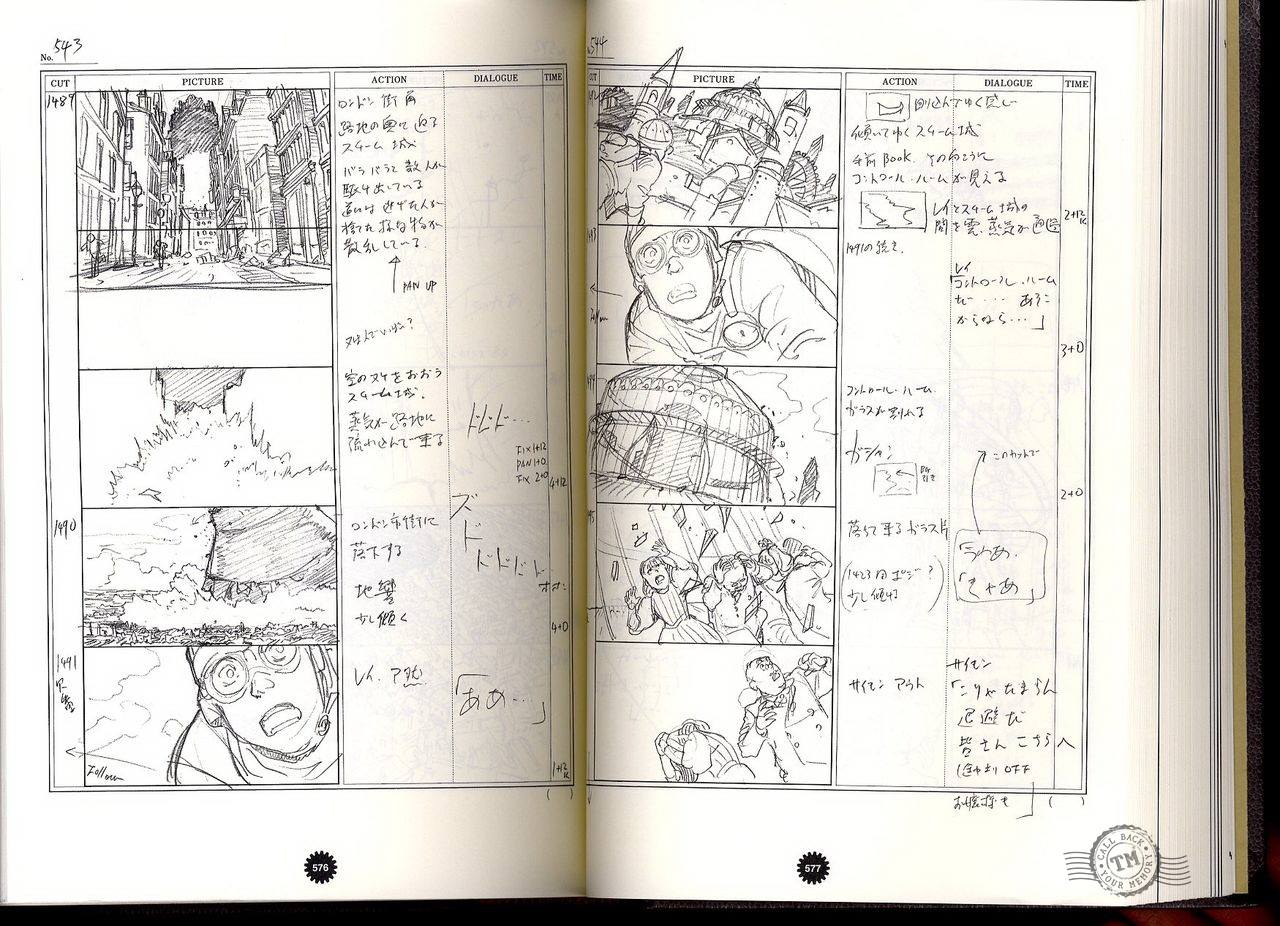 No. 543
CUT PICTURE ACTION DIALOGUE TIME
1489
ロンドン 街角
路地の奥に 迫る
スチーム 城
バラバラと 数人が
駆け出している
道には 逃げた人が
捨てた 様な物が
散乱している.
PAN UP
空のヌケをおおう
スチーム城.
蒸気が 路地に
流れ込んで 来る
ドドド…
FIX 1+12
PAN 1+0
FIX 2+0
4+12
1490
ロンドン市街に
落下する
地響
少し傾く
ズ
ド
ドドドド
4+0
1491
Follow
レイ. アオリ
「ああ…」
1+12
576
544
CUT PICTURE ACTION DIALOGUE TIME
回り込んでゆく感じ
傾いてゆく スチーム城
手前 BOOK. その向こうに
コントロール・ルームが見える
レイとスチーム城の
間を雲、蒸気が通過
2+12
1491の続き.
レイ
「コントロール・ルーム
だ… あそこ
からなら…」
3+0
コントロール・ルーム.
ガラスが割れる
ガシャン
このカットで
2+0
落ちて来るガラス片
(1423同ポジ?
少し傾け)
「うわあ.
「きゃあ」
サイモン アウト
サイモン
「こりゃたまらん
退避だ
皆さん こちらへ
(途中より OFF
お客様も」
577
CALL BACK
TM
YOUR MEMORY